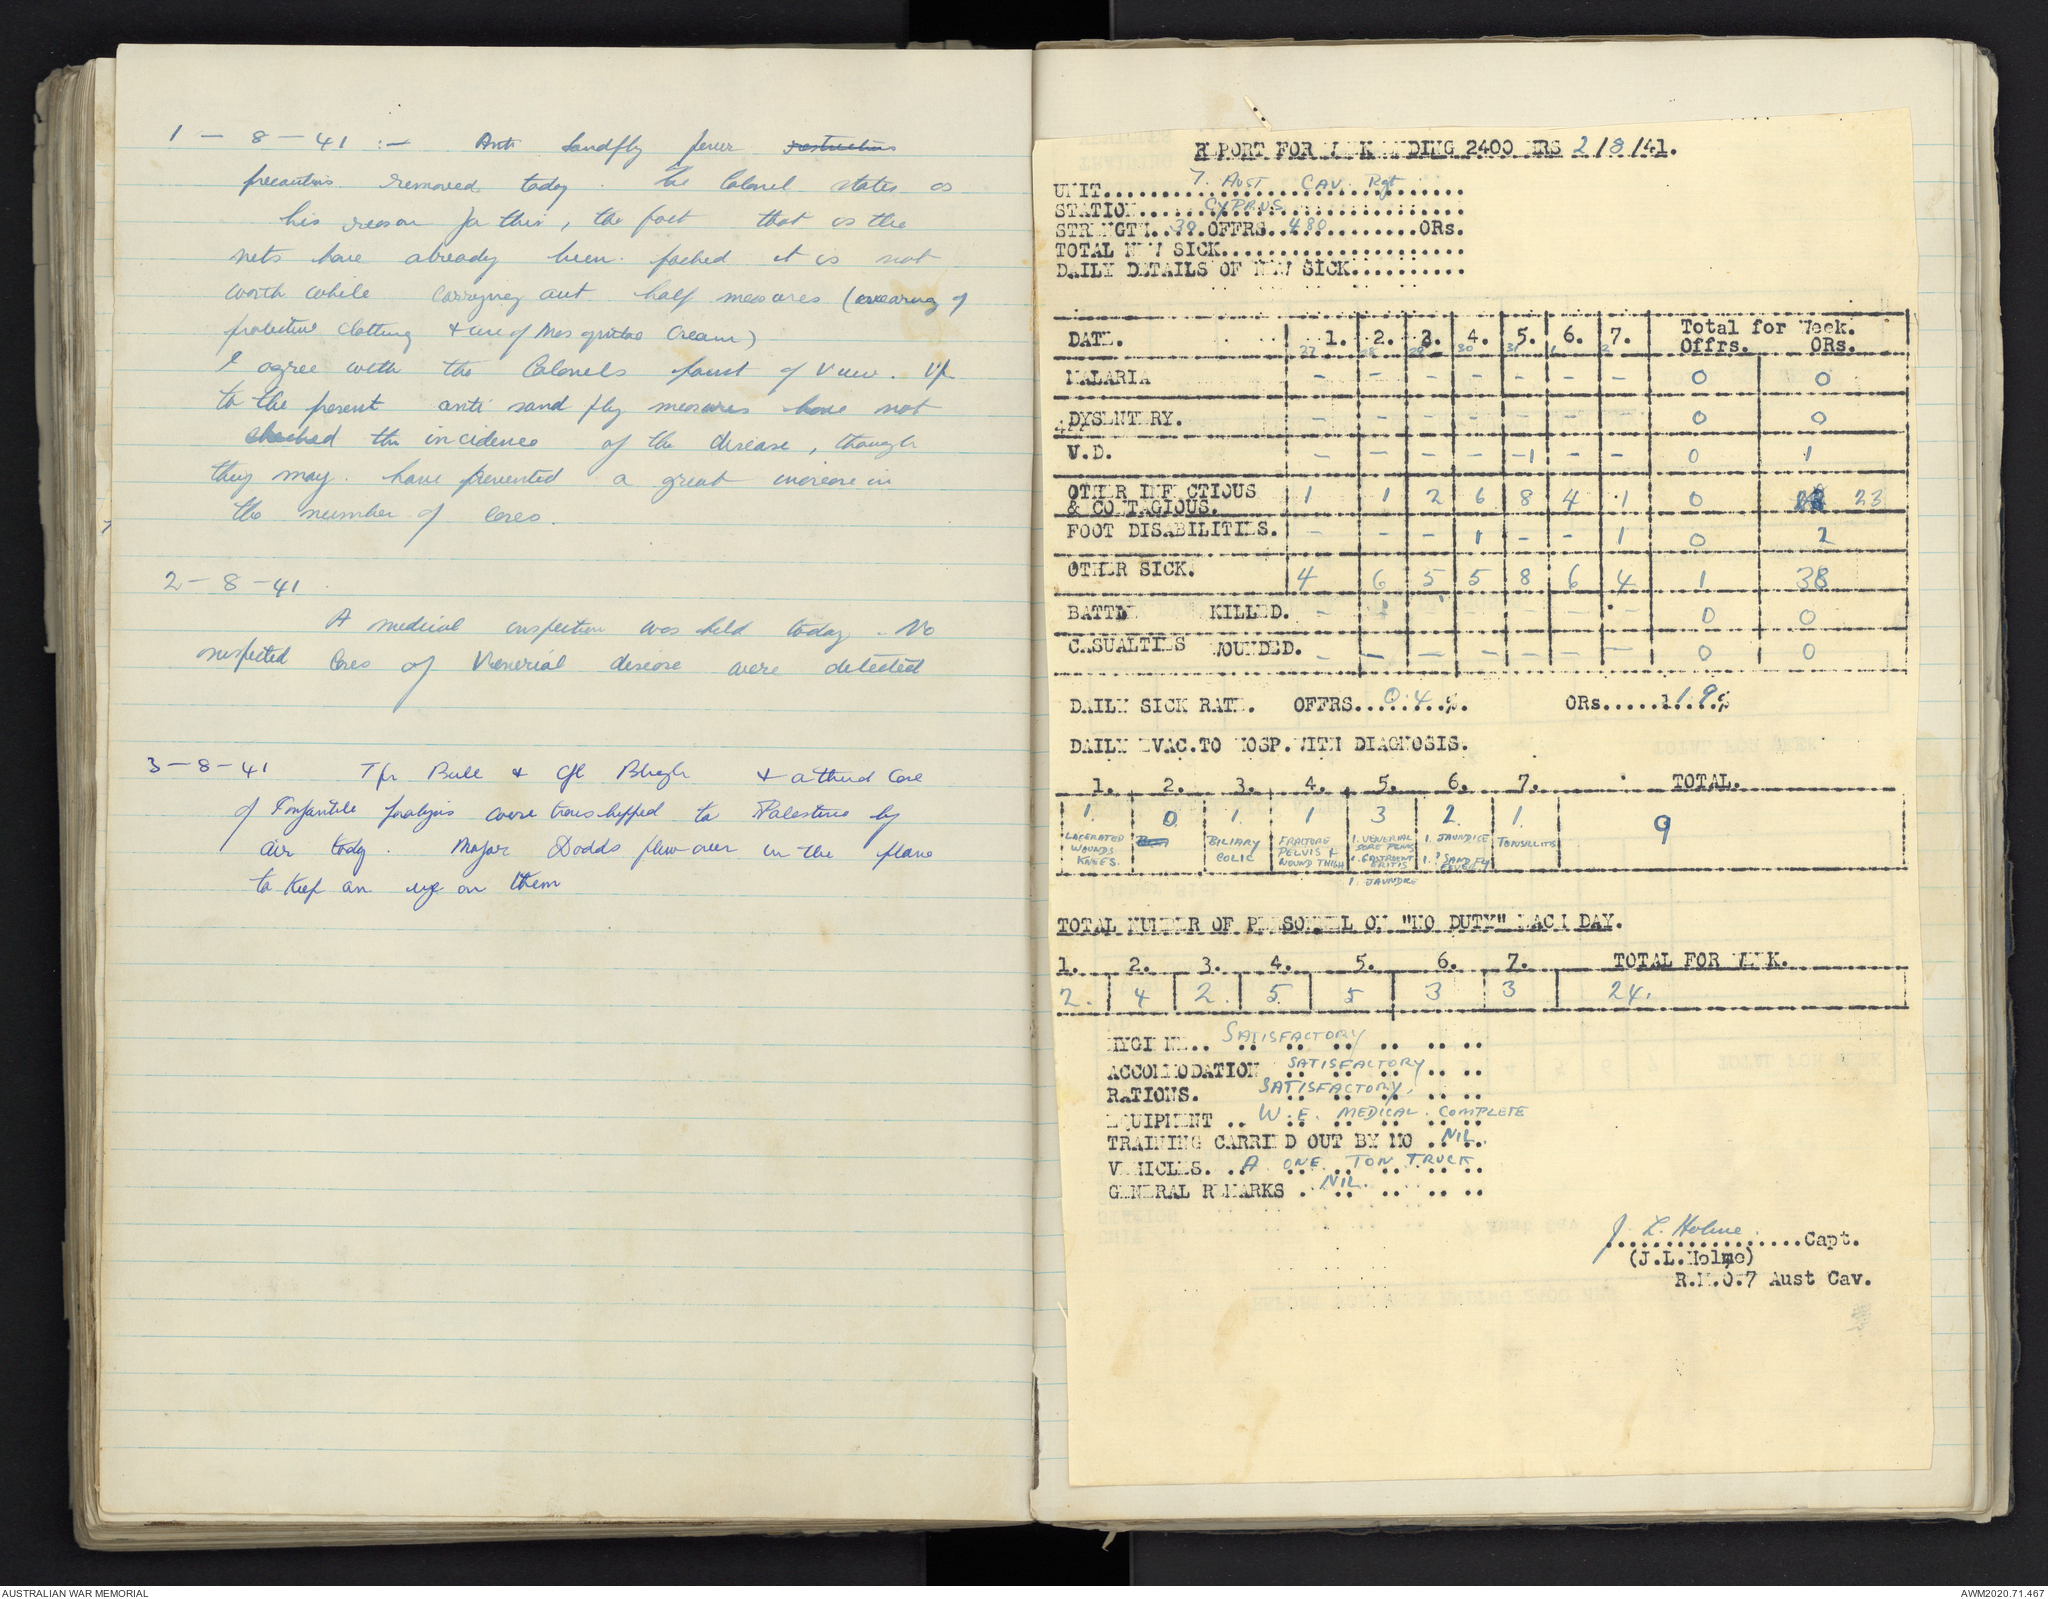 1 - 8 - 41 :- Anti Sandfly fever restrictions
precautions removed today. The Colonel states as
his reason for this, the fact that as the
nets have already been packed it is not
worth while carrying out half measures (wearing of
protective clothing & use of Mosquitoe Cream)
I agree with the Colonels point of view. Up
to the present anti sand fly measures have not
checked the incidence of the disease, though
they may have prevented a great increase in
the number of cases.
2 - 8 - 41
A medical inspection was held today. No
suspected cases of Venerial disease were detected
3 - 8 - 41 Tpr Bull & Cpl & a third case
of Infantile paralysis were transhipped to Palestine by
air today. Major Dodds flew over in the plane
to keep an eye on them
REPORT FOR WEEK ENDING 2400 HRS 2/8/41.
UNIT..... 7 AUST CAV. Rgt.....
STATION..... CYPRUS.....
STRENGTH.. 30 .OFFRS.. 480 .....ORs.
TOTAL NEW SICK.....................
DAILY DETAILS OF NEW SICK..........
DATE. 1. 2. 3. 4. 5. 6. 7. Total for Week.
27 28 29 30 31 1 2 Offrs. ORs.
MALARIA - - - - - - - 0 0
DYSENTERY. - - - - - - - 0 0
V.D. - - - - 1 - - 0 1
OTHER INFECTIOUS 1 1 2 6 8 4 1 0 23
& CONTAGIOUS.
FOOT DISABILITIES. - - - 1 - - 1 0 2
OTHER SICK. 4 6 5 5 8 6 4 1 38
BATTLE KILLED. - - - - - - - 0 0
CASUALTIES WOUNDED. - - - - - - - 0 0
DAILY SICK RATE. OFFRS.. 0.4 .%. ORs..... 1.9 %
DAILY EVAC.TO HOSP.WITH DIAGNOSIS.
1. 2. 3. 4. 5. 6. 7. TOTAL.
1. 0 1. 1 3 2. 1. 9
LACERATED BILIARY FRACTURE 1. VENERIAL 1. JAUNDICE TONSILLITIS
WOUNDS COLIC PELVIS & SORE PENIS 1. ? SAND FLY
KNEES. WOUND THIGH 1. GASTROENT FEVER
ERITIS
1. JAUNDICE
TOTAL NUMBER OF PERSONNEL ON "NO DUTY" EACH DAY.
1. 2. 3. 4. 5. 6. 7. TOTAL FOR WEEK.
2. 4 2. 5 5 3 3 24.
HYGIENE.. SATISFACTORY
ACCOMMODATION SATISFACTORY
RATIONS. SATISFACTORY.
EQUIPMENT .. W.E. MEDICAL. COMPLETE
TRAINING CARRIED OUT BY MO .. NIL.
VEHICLES. .. A ONE TON TRUCK
GENERAL REMARKS . NIL.
J. L. Holme
..................Capt.
(J.L.Holme)
R.M.O.7 Aust Cav.
AUSTRALIAN WAR MEMORIAL
AWM2020.71.467